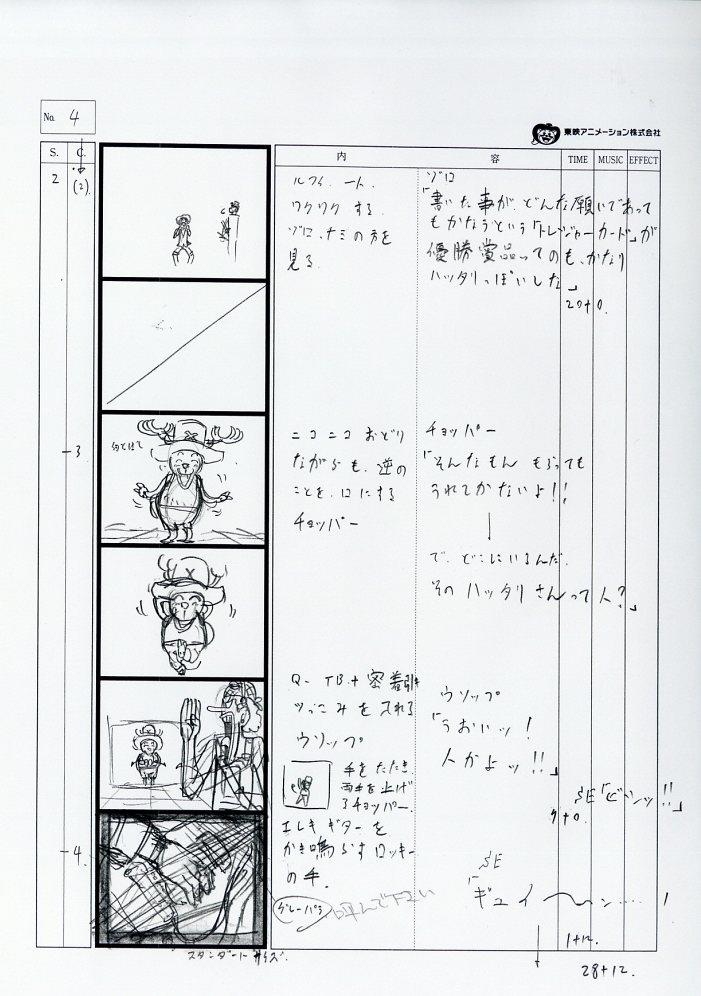 No. 4
東映アニメーション株式会社
S. C. 内 容 TIME MUSIC EFFECT
2 (2)
ワクワク する
ゾロ、ナミの方を
見る
ゾロ
「書いた事が、どんな願いであって
もかなうという「トレジャーカード」が
優勝賞品ってのも、かなり
ハッタリっぽいしな」
27+0.
3
ニコニコ おどり
ながらも、逆の
ことを、口にする
チョッパー
チョッパー
「そんなもん もらっても
うれしかないよ!!
で、どこにいるんだ、
その ハッタリ さんって人?」
Q- T.B.+ 密着引き
ツっこみを入れる
ウソップ
手をたたき、
両手を上げ
るチョッパー.
ウソップ
「うおいッ!
人かよッ!!」
SE「ビシッ!!」
9+0.
4.
エレキ ギターを
かき鳴らす ロッキー
の手.
SE
「ギュイ〜ン……!
1+12.
スタンダード サイズ.
28+12.